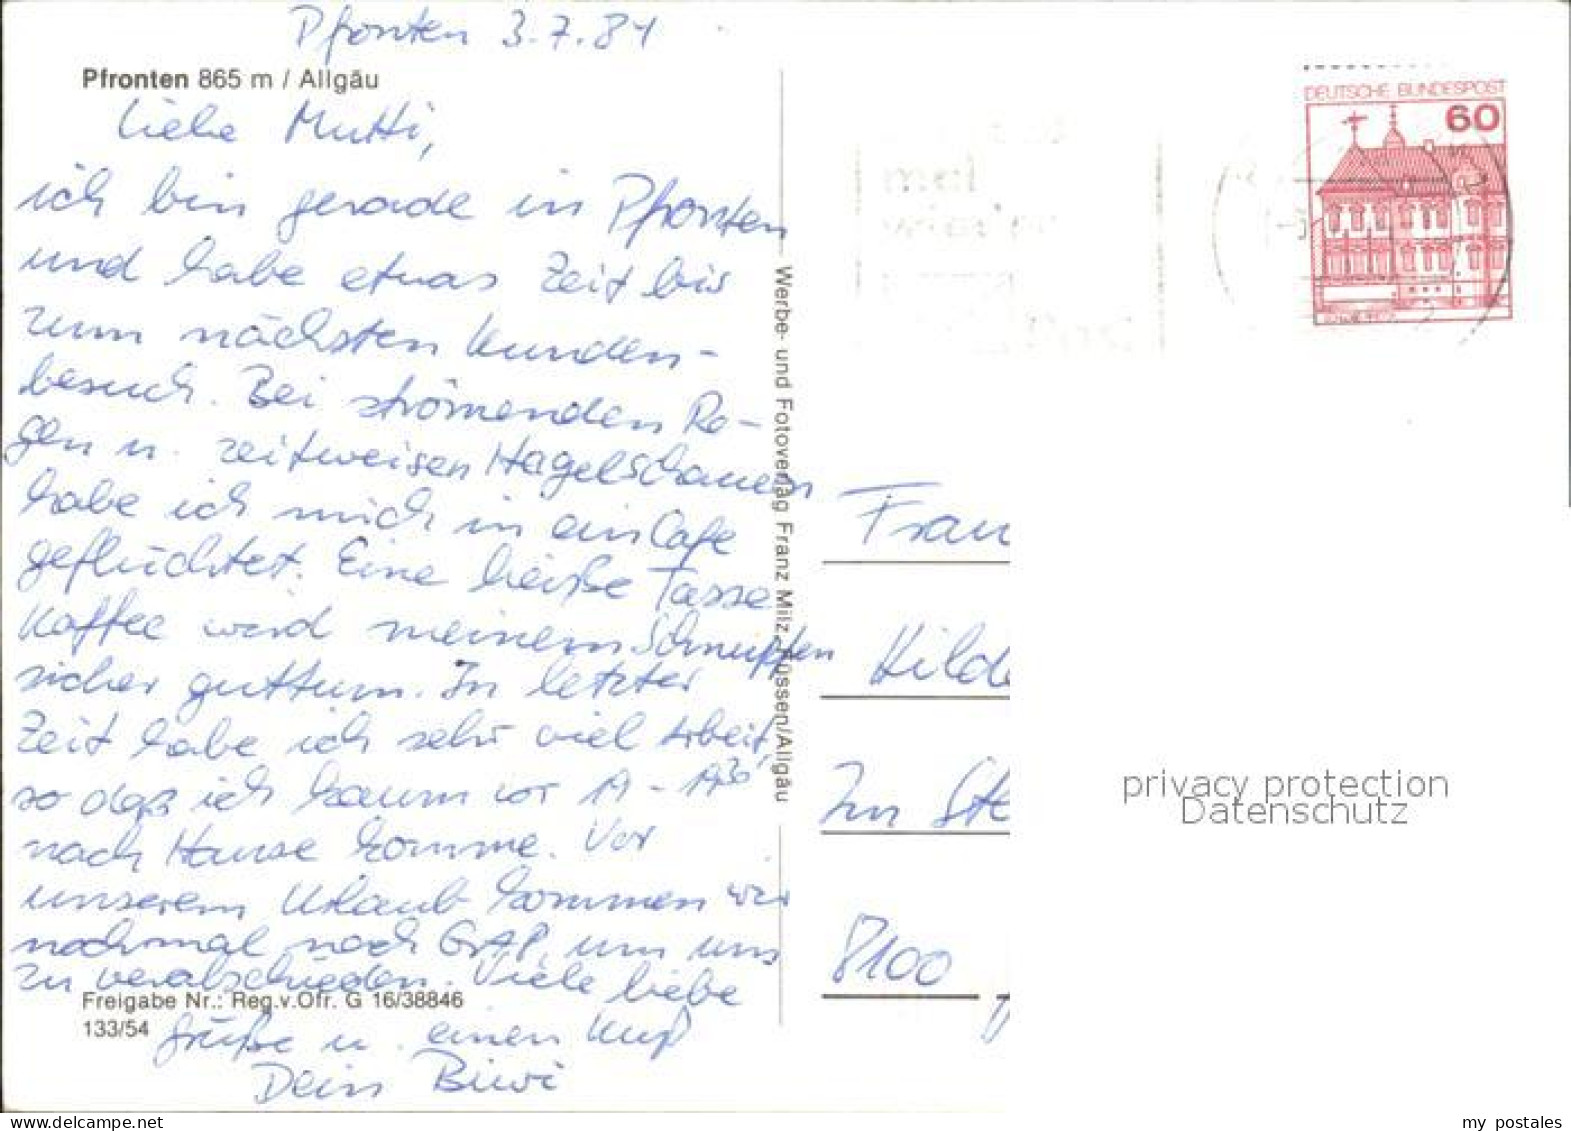 Pfronten 3.7.81
Pfronten 865 m / Allgäu
Liebe Mutti,
ich bin gerade in Pfronten
und habe etwas Zeit bis
zum nächsten Kunden-
besuch. Bei strömenden Re-
gen u. zeitweisen Hagelschauern
habe ich mich in ein Cafe
geflüchtet. Eine heiße Tasse
Kaffee wird meinem Schnupfen
sicher guttum. In letzter
Zeit habe ich sehr viel Arbeit,
so daß ich kaum vor 19 - 19³⁰
nach Hause komme. Vor
unserem Urlaub kommen wir
nochmal nach GAP, um uns
zu verabschieden. Viele liebe
Grüße u. einen Kuß
Dein Biwi
Freigabe Nr.: Reg.v.Ofr. G 16/38846
133/54
Werbe- und Fotoverlag Franz Milz, Füssen/Allgäu
DEUTSCHE BUNDESPOST
60
mal
wieder
Frau
Hilde
Im Ste
8100
privacy protection
Datenschutz
my postales